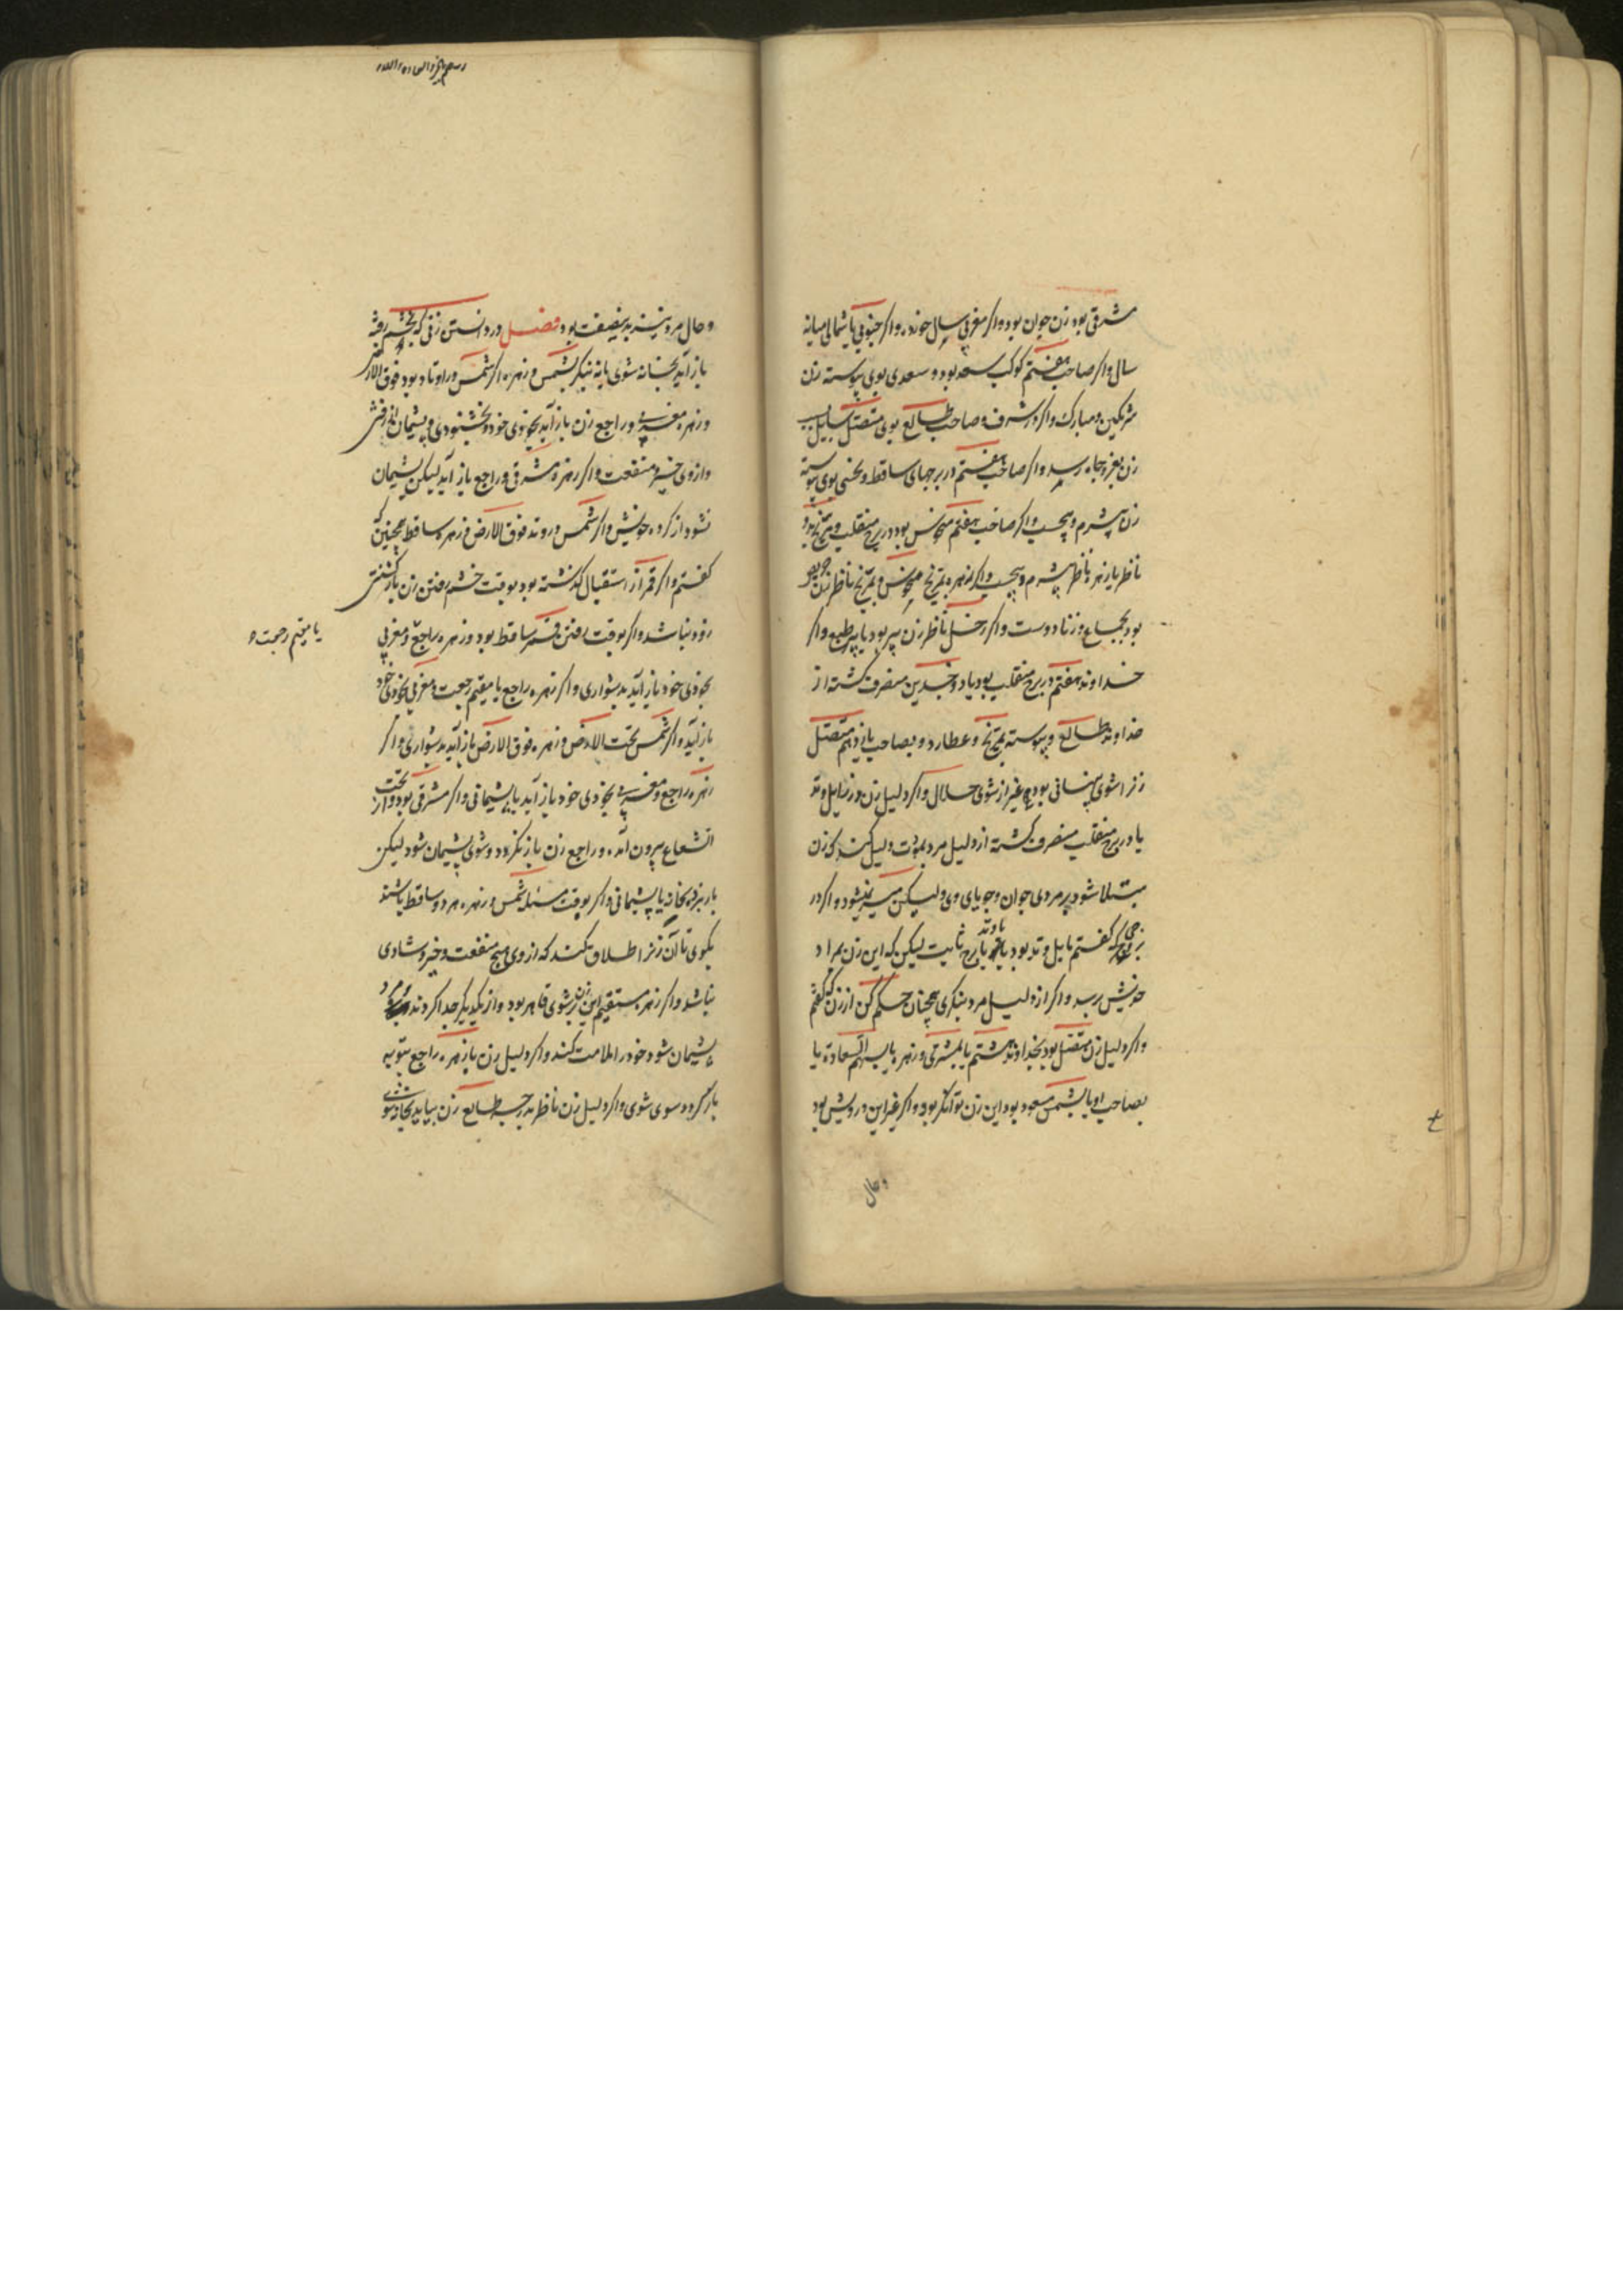 مشرقی بود زن جوان بود و اگر مغربی بسال خورده و اگر جنوبی یا شمالی میانه
سال و اگر صاحب هفتم کوکب سعد بود و سعدی بوی پیوسته زن
شرمگین و مبارک و اگر در شرف و صاحب طالع بوی متصل
زن بعز و جاه رسد و اگر صاحب هفتم در برجهای ساقط و نحسی بوی پیوسته
زن بی شرم و و اگر صاحب هفتم منحوس بود در برج منقلب و مریخ بود
ناظر یا زهره ناظر بی شرم و و اگر زهره بمریخ منحوس و مریخ ناظر زن
بود بجماع و زنا دوست و اگر زحل ناظر زن پیر بود یا پیر طبع و اگر
خداوند هفتم در برج منقلب بود یا ذو جسدین منصرف گشته از
خداوند طالع و پیوسته بمریخ و عطارد و بصاحب یازدهم متصل
زن را شوی پنهانی بود غیر از شوی حلال و اگر دلیل زن در زایل وتد
یا در برج منقلب منصرف گشته از دلیل مرد دلیل کند که زن
مبتلا شود بر مردی جوان و جویای وی ولیکن میسر نشود و اگر در
برجی که گفتم مایل وتد بود یا وتد یا برج ثابت لیکن که این زن بمراد
خویش برسد و اگر از دلیل مرد بنگری همچنان حکم کن از زن که گفتم
و اگر دلیل زن متصل بود بخداوند هشتم یا بمشتری و زهره یا بسهم السعادة یا
بصاحب او یا بشمس مسعود بود این زن توانگر بود و اگر غیر این درویش بود
و حال
و حال مرد نیز بدین صفت بود فصل در دانستن زنی که بخشم رفته
باز آید بخانه شوی یا نه بنگر بشمس و زهره اگر شمس در اوتاد بود فوق الارض
و زهره مغربی و راجع زن باز آید بخودی خود و بخشنودی و پشیمان از رفتن
و از وی خیر و منفعت و اگر زهره مشرقی و راجع باز آید لیکن پشیمان
نشود از کرده خویش و اگر شمس در وتد فوق الارض و زهره ساقط همچنین که
گفتم و اگر قمر از استقبال گذشته بود بوقت خشم رفتن زن باز گشتن
زود نباشد و اگر بوقت رفتن قمر ساقط بود و زهره راجع و مغربی
بخودی خود باز آید بدشواری و اگر زهره راجع یا مقیم رجعت و مغربی بخودی خود
باز آید و اگر شمس تحت الارض و زهره فوق الارض باز آید بدشواری و اگر
زهره راجع و مغربی بخودی خود باز آید با پشیمانی و اگر مشرقی بود و از تحت
الشعاع بیرون آمده و راجع زن باز نگردد و شوی پشیمان شود لیکن
باز بخانه با پشیمانی و اگر بوقت مسئله شمس و زهره هر دو ساقط باشند
بگوی تا آن زن را طلاق بکند که از وی هیچ منفعت و خیر و شادی
نباشد و اگر زهره مستقیم این زن بر شوی قاهر بود و از یکدیگر جدا گردند مرد
پشیمان شود خود را ملامت کند و اگر دلیل زن یا زهره راجع بتوبه
باز گردد سوی شوی و اگر دلیل زن ناظر بدرجه طالع زن بیاید بخانه شوی
یا مقیم رجعت